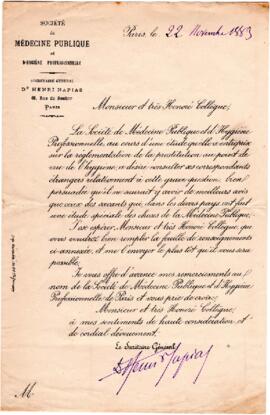 SOCIÉTÉ
DE
MÉDECINE PUBLIQUE
ET
D'HYGIÈNE PROFESSIONNELLE
SECRÉTAIRE GÉNÉRAL
Dr HENRI NAPIAS
68, Rue du Rocher
PARIS
Paris, le 22 Novembre 1883
Monsieur et très Honoré Collègue,
La Société de Médecine Publique et d'Hygiène
Professionnelle, au cours d'une étude qu'elle a entreprise
sur la réglementation de la prostitution au point de
vue de l'hygiène, a désiré consulter ses correspondants
étrangers relativement à cette grave question, bien
persuadée qu'il ne saurait y avoir de meilleurs avis
que ceux des savants qui dans les divers pays ont fait
une étude spéciale des choses de la Médecine Publique.
J'ose espérer, Monsieur et très Honoré Collègue, que
vous voudrez bien remplir la feuille de renseignements
ci-annexée, et me l'envoyer le plus tôt qu'il vous sera
possible.
Je vous offre d'avance mes remerciements au
nom de la Société de Médecine Publique et d'Hygiène
Professionnelle de Paris et vous prie de croire,
Monsieur et très Honoré Collègue,
à mes sentiments de haute considération et
de cordial dévouement.
Le Secrétaire Général,
Dr Henri Napias
M